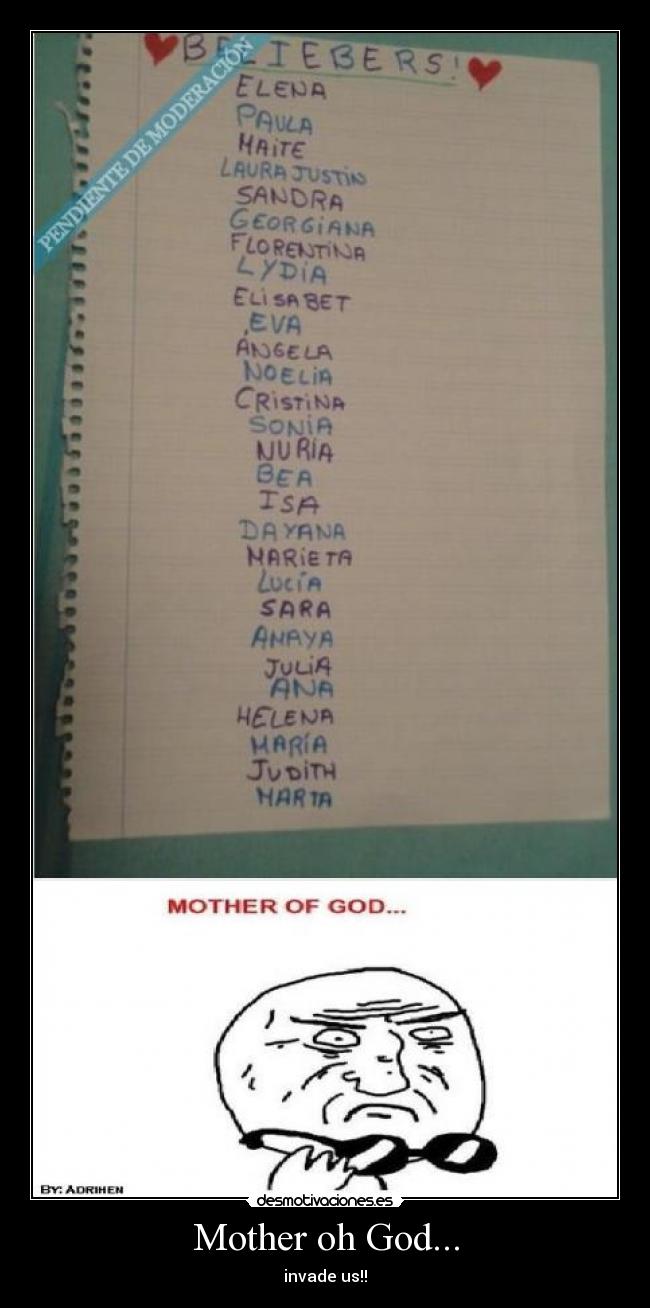 BELIEBERS!
PENDIENTE DE MODERACIÓN
ELENA
PAULA
MAITE
LAURA JUSTIN
SANDRA
GEORGIANA
FLORENTINA
LYDIA
ELISABET
EVA
ÁNGELA
NOELIA
CRISTINA
SONIA
NURIA
BEA
ISA
DAYANA
MARIETA
LUCÍA
SARA
AMAYA
JULIA
ANA
HELENA
MARÍA
JUDITH
MARTA
MOTHER OF GOD...
BY: ADRIHEN
desmotivaciones.es
Mother oh God...
invade us!!